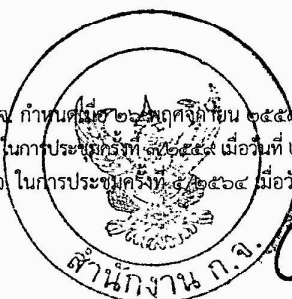 จ. กำหนดเมื่อ ๒๖ พฤศจิกายน ๒๕๕
ในการประชุมครั้งที่ /๒๕๕๙ เมื่อวันที่
จ. ในการประชุมครั้งที่ ๕/๒๕๖๔ เมื่อวั
สำนักงาน ก.จ.